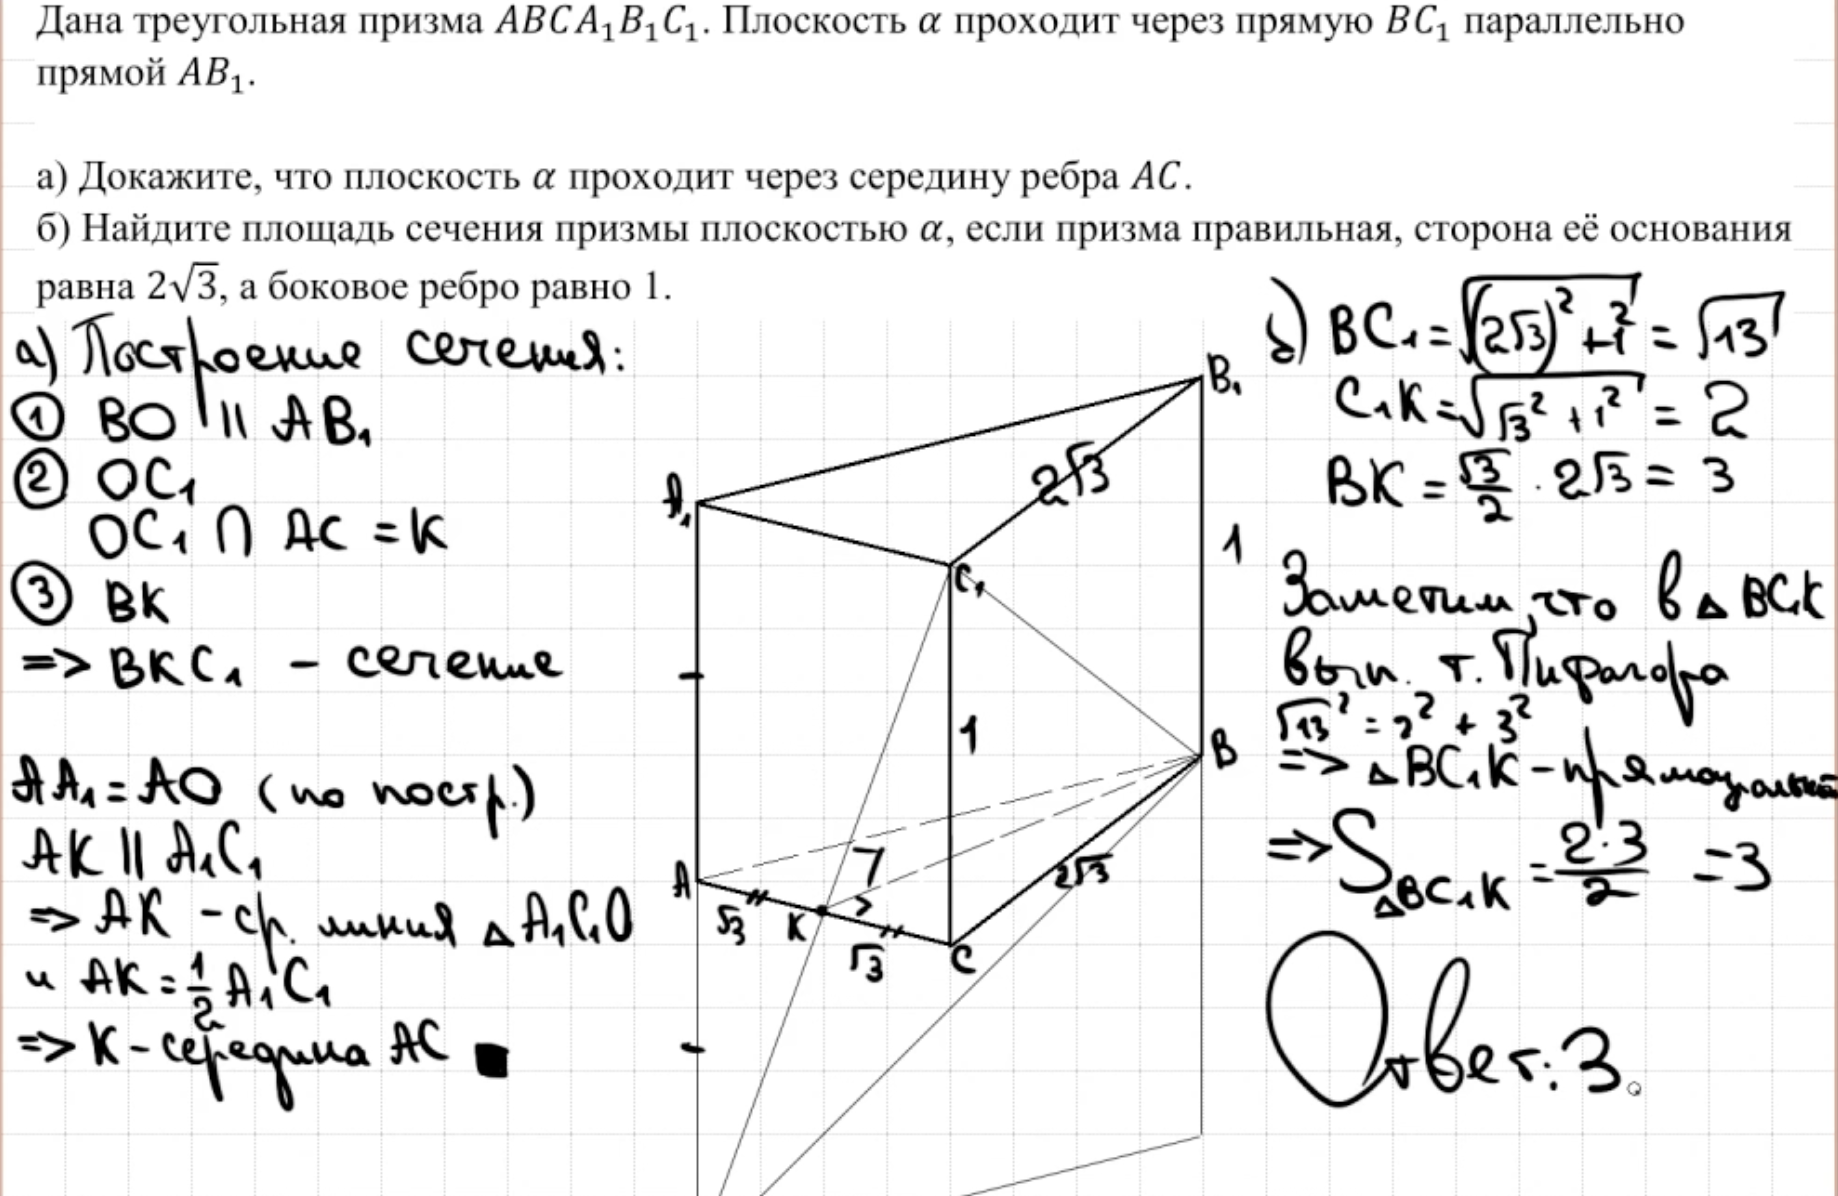 Дана треугольная призма ABCA₁B₁C₁. Плоскость α проходит через прямую BC₁ параллельно
прямой AB₁.
а) Докажите, что плоскость α проходит через середину ребра AC.
б) Найдите площадь сечения призмы плоскостью α, если призма правильная, сторона её основания
равна 2√3, а боковое ребро равно 1.
а) Построение сечения:
① BO || AB₁
② OC₁
OC₁ ∩ AC = K
③ BK
=> BKC₁ - сечение
AA₁ = AO (по постр.)
AK || A₁C₁
=> AK - ср. линия △ A₁C₁O
и AK = 1/2 A₁C₁
=> K - середина AC ■
A₁
B₁
C₁
2√3
1
1
A
B
C
K
√3
√3
2√3
б) BC₁ = √((2√3)² + 1²) = √13
C₁K = √(√3² + 1²) = 2
BK = √3/2 · 2√3 = 3
Заметим, что в △ BC₁K
вып. т. Пифагора
√13² = 2² + 3²
=> △ BC₁K - прямоугольный
=> S△BC₁K = 2·3/2 = 3
Ответ: 3.